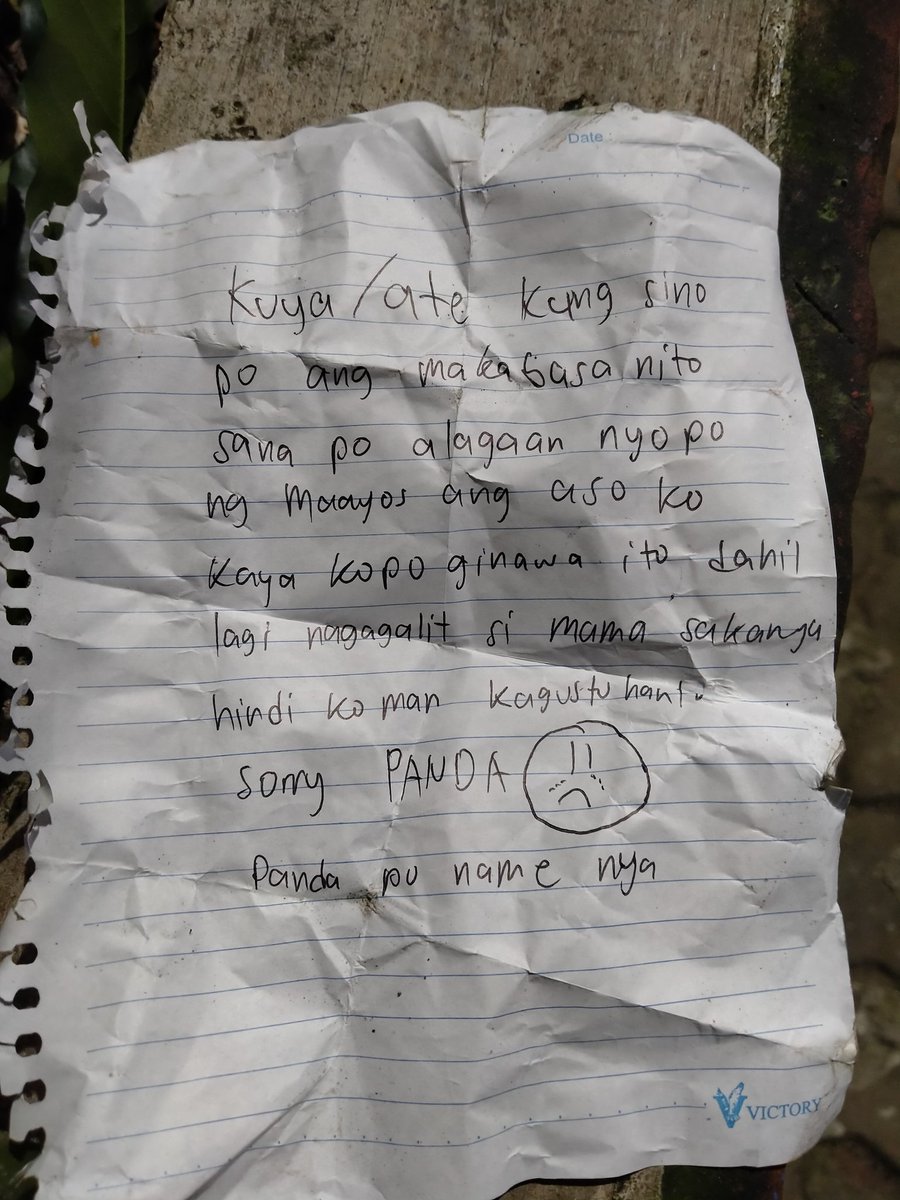 Date :
Kuya/ate kung sino
po ang makabasa nito
sana po alagaan nyopo
ng maayos ang aso ko
kaya kopo ginawa ito dahil
lagi nagagalit si mama sakanya
hindi ko man kagustuhant.
sorry PANDA
Panda po name nya
VICTORY